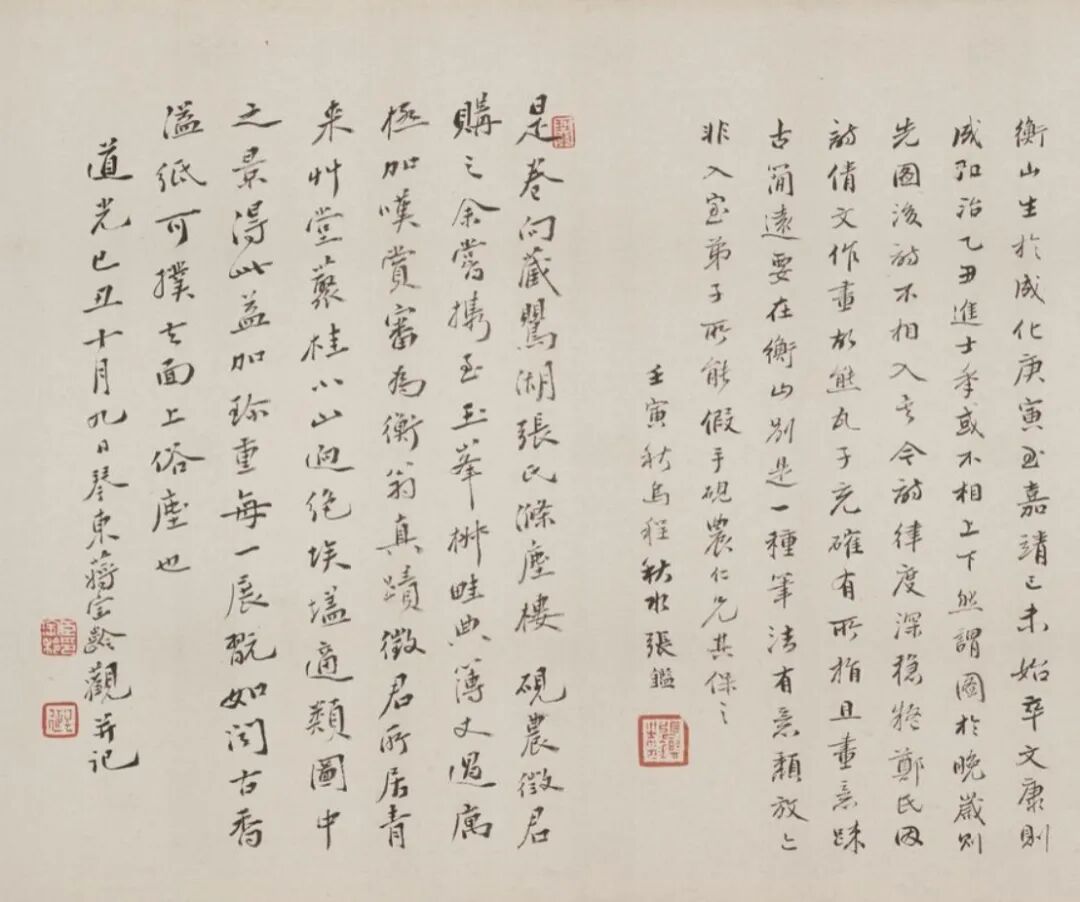 衡山生於成化庚寅至嘉靖己未始卒文康則
成弘治乙丑進士年或不相上下然謂圖於晚歲則
先圖後詩不相入矣今詩律度深穩將鄭氏因
詩倩文作畫故熊瓦子充確有所指且畫意疎
古簡遠要在衡山別是一種筆法有意頹放之
非入室弟子所能假手硯農仁兄其保之
壬寅秋烏程秋水張鑑
是卷向藏鴛湖張氏滌塵樓硯農徵君
購之余嘗攜至玉峯楙畦典簿丈過寓
極加嘆賞審為衡翁真蹟徵君所居青
來艸堂叢桂小山迥絕埃壒適類圖中
之景得此益加珍重每一展翫如聞古香
溢紙可撲去面上俗塵也
道光己丑十月九日琴東蔣寶齡觀并記